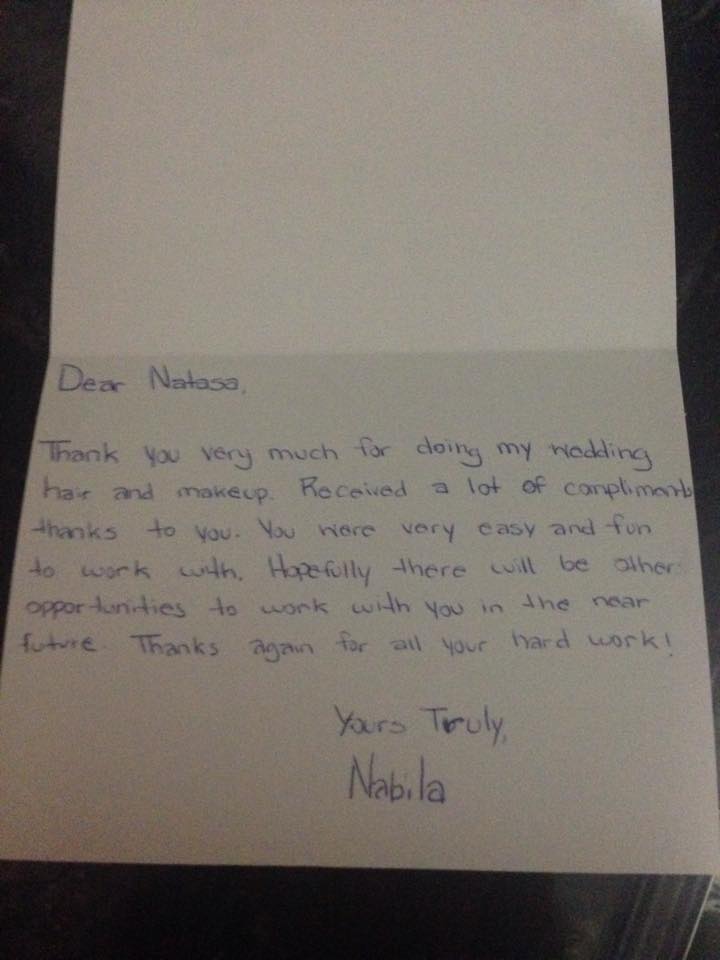 Dear Natasa,
Thank you very much for doing my wedding
hair and makeup. Received a lot of compliments
thanks to you. You were very easy and fun
to work with. Hopefully there will be other
opportunities to work with you in the near
future. Thanks again for all your hard work!
Yours Truly,
Nabila